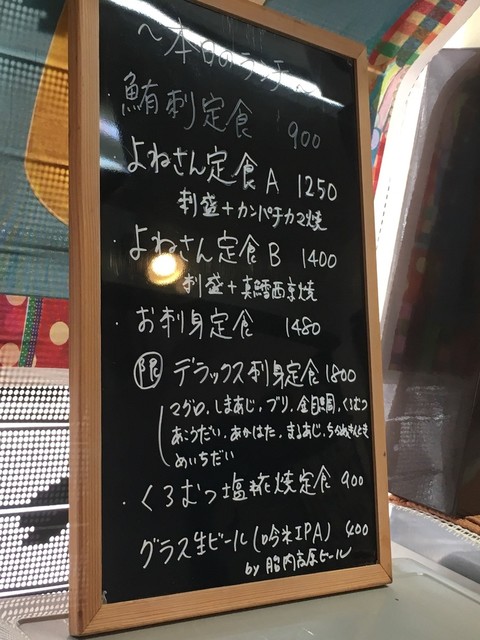 ～本日のランチ～
・鮪刺定食 900
よねさん定食A 1250
刺盛+カンパチカマ焼
・よねさん定食B 1400
刺盛+真鱈西京焼
・お刺身定食 1480
限 デラックス刺身定食 1800
マグロ、しまあじ、ブリ、金目鯛、くろむつ
あこうだい、あかはた、まるあじ、
めいちだい
・くろむつ塩麹焼定食 900
グラス生ビール(吟米IPA) 400
by 胎内高原ビール